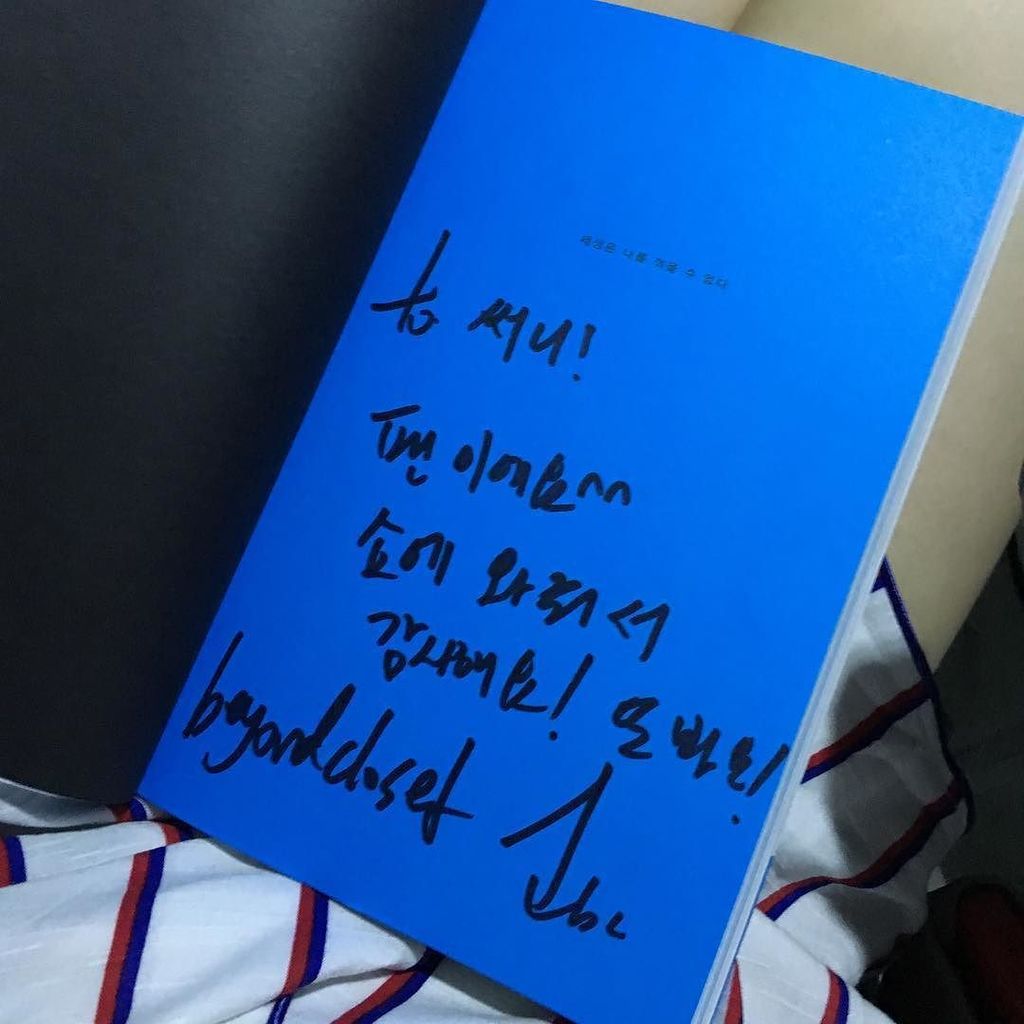 세상은 나를 꺾을 수 없다
to 써니!
팬이에요^^
쇼에 와줘서
감사해요! 또 봐요!
beyondcloset